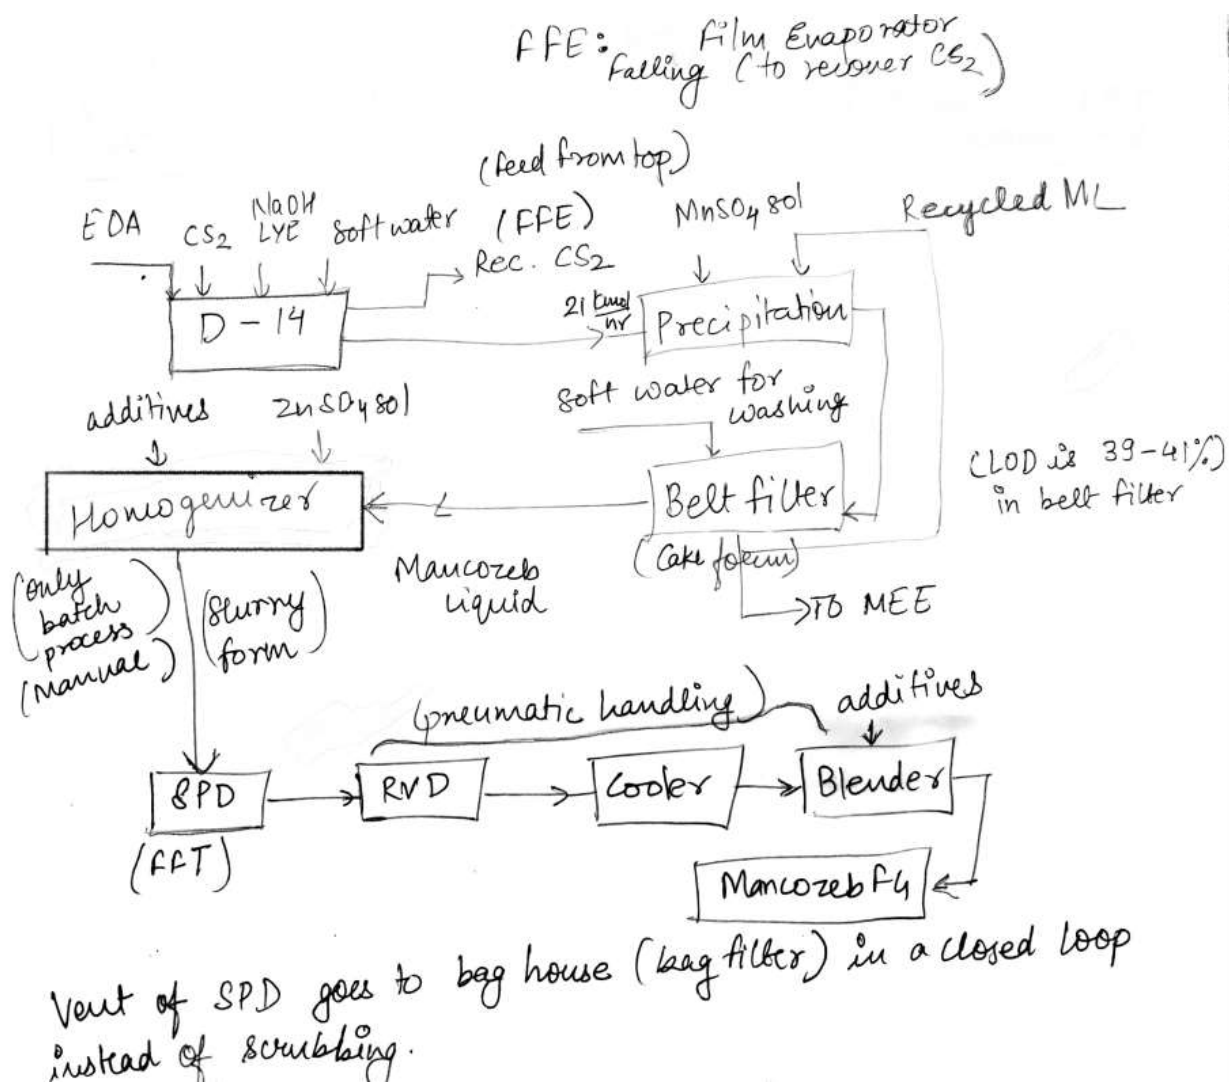 FFE: Film Evaporator
Falling (to recover CS2)
(feed from top)
(FFE)
EDA
CS2
NaOH
LYE
Soft water
Rec. CS2
MnSO4 sol
Recycled ML
D-14
21 kmol/hr
Precipitation
additives
ZnSO4 sol
Soft water for
washing
Homogenizer
Belt filter
(LOD is 39-41%)
in belt filter
(Cake form)
Mancozeb
Liquid
TO MEE
(only
batch
process)
(Manual)
(Slurry
form)
(pneumatic handling)
additives
SPD
RVD
Cooler
Blender
(FFT)
Mancozeb FG
Vent of SPD goes to bag house (bag filter) in a closed loop
instead of scrubbing.